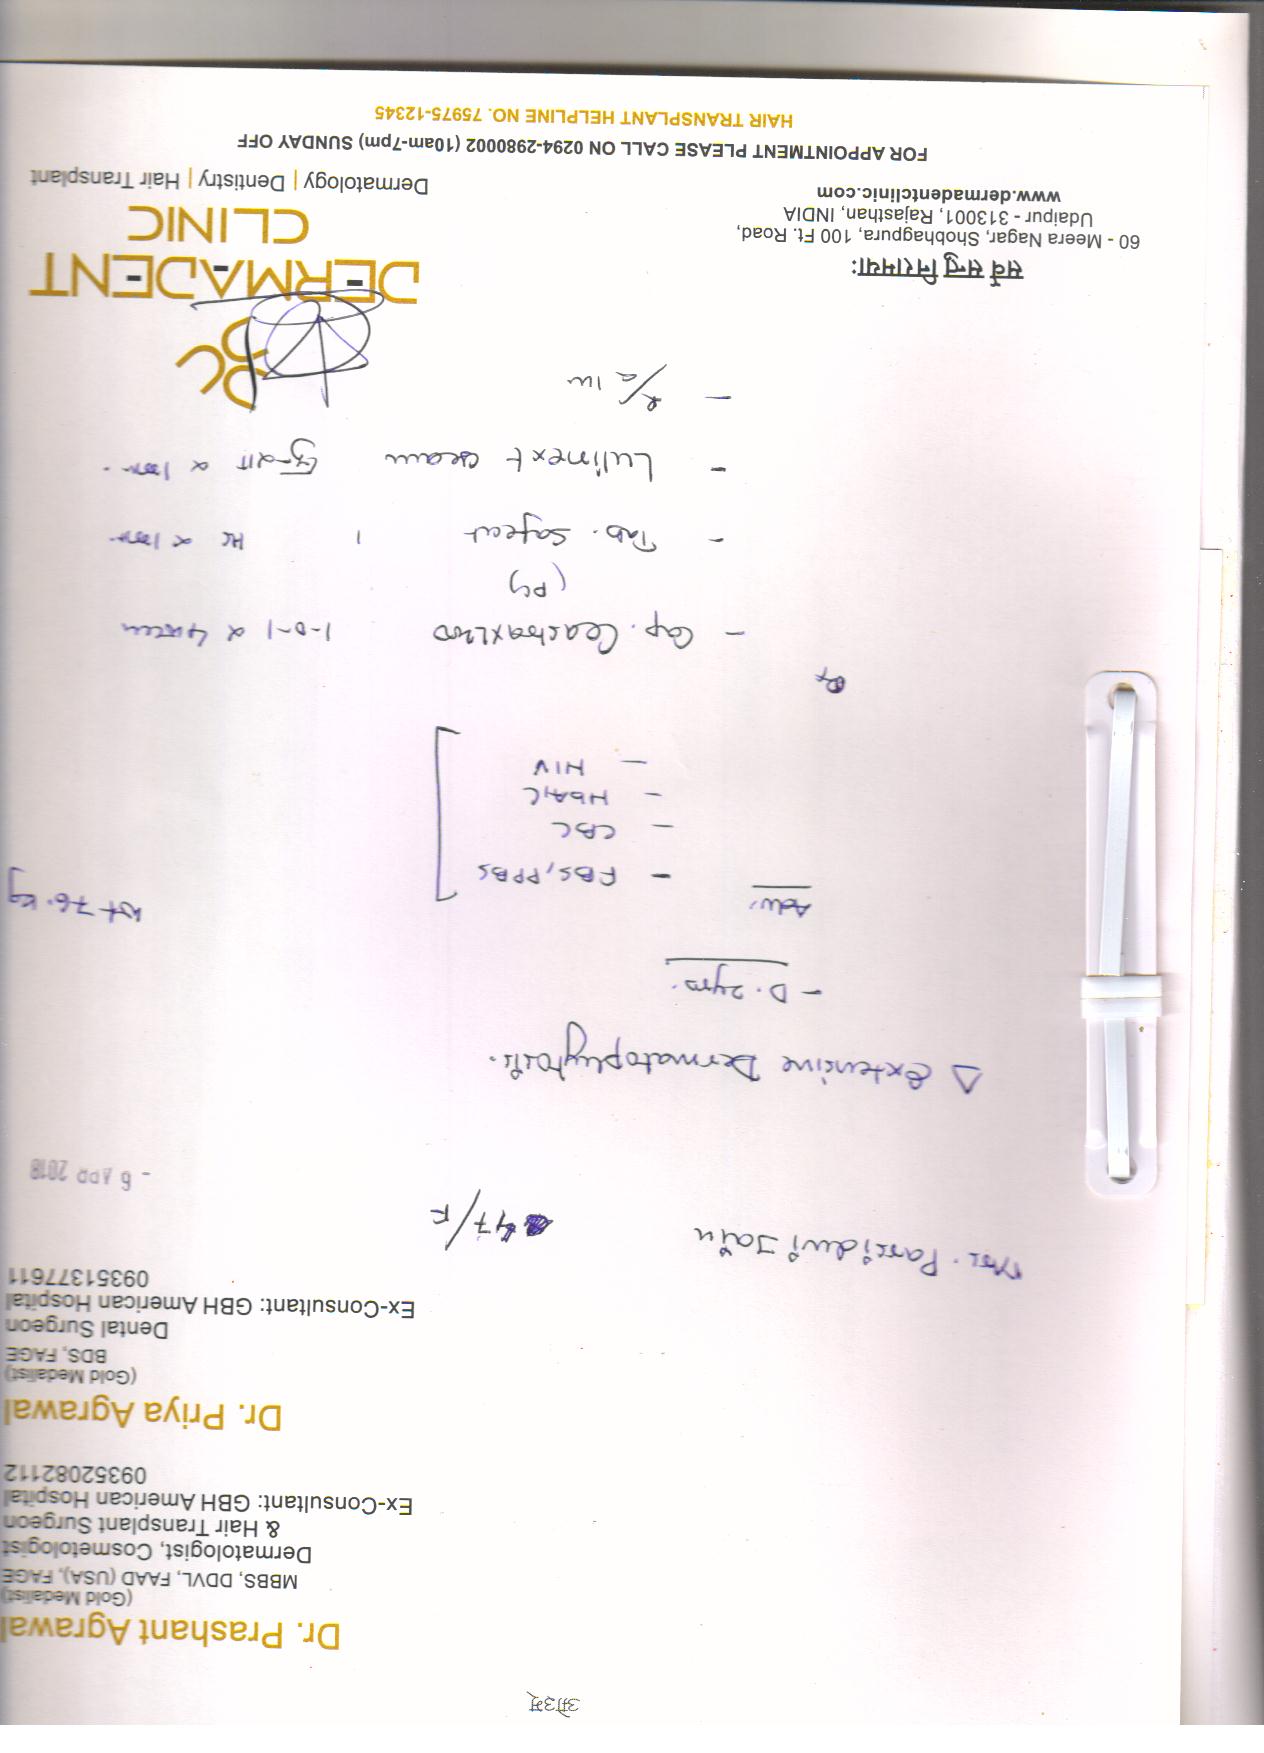 ॐ
Dr. Prashant Agrawal
(Gold Medalist)
MBBS, DDVL, FAAD (USA), FAGE
Dermatologist, Cosmetologist
& Hair Transplant Surgeon
Ex-Consultant: GBH American Hospital
09352082112
Dr. Priya Agrawal
(Gold Medalist)
BDS, FAGE
Dental Surgeon
Ex-Consultant: GBH American Hospital
09351377611
Jain 47/F
- 6 APR 2018
Δ Extensive Dermatophytosis.
- D. 2yrs.
Adv. Wt 76.kg
- FBS, PPBS
- CBC
- HbA1C
- HIV
Rx
- Cap. 1-0-1 x 4 week
- Tab. 1 HS x
- Lulinext cream x
- 1w
DC
DERMADENT
CLINIC
Dermatology | Dentistry | Hair Transplant
सर्वे सन्तु निरामयाः
60 - Meera Nagar, Shobhagpura, 100 Ft. Road,
Udaipur - 313001, Rajasthan, INDIA
www.dermadentclinic.com
FOR APPOINTMENT PLEASE CALL ON 0294-2980002 (10am-7pm) SUNDAY OFF
HAIR TRANSPLANT HELPLINE NO. 75975-12345